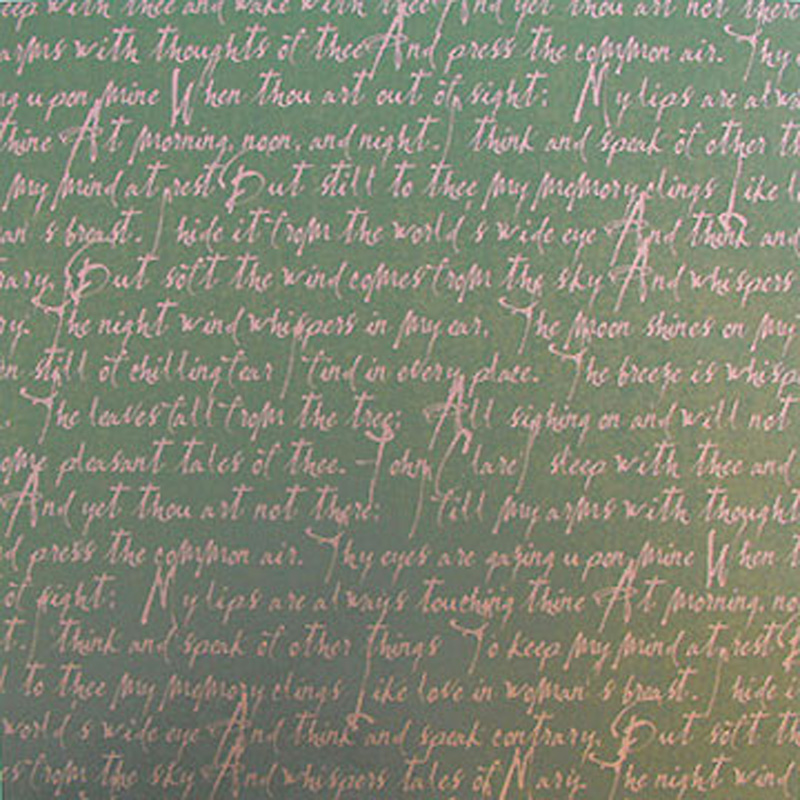 eep with thee and wake with thee And yet thou art not there
arms with thoughts of thee And press the common air. Thy
ng upon mine When thou art out of sight; My lips are alwa
thine At morning, noon, and night. I think and speak of other th
my mind at rest But still to thee my memory clings Like l
an's breast. I hide it from the world's wide eye And think and
rary. But soft the wind comes from the sky And whispers
ry. The night wind whispers in my ear, The moon shines on my
en still of chilling fear I find in every place. The breeze is whisp
. The leaves fall from the tree; All sighing on and will not
ome pleasant tales of thee. John Clare I sleep with thee and
And yet thou art not there: I fill my arms with thought
d press the common air. Thy eyes are gazing upon mine When t
of sight; My lips are always touching thine At morning, no
t. I think and speak of other things To keep my mind at rest B
l to thee my memory clings Like love in woman's breast. I hide i
world's wide eye And think and speak contrary. But soft th
es from the sky And whispers tales of Mary. The night wind